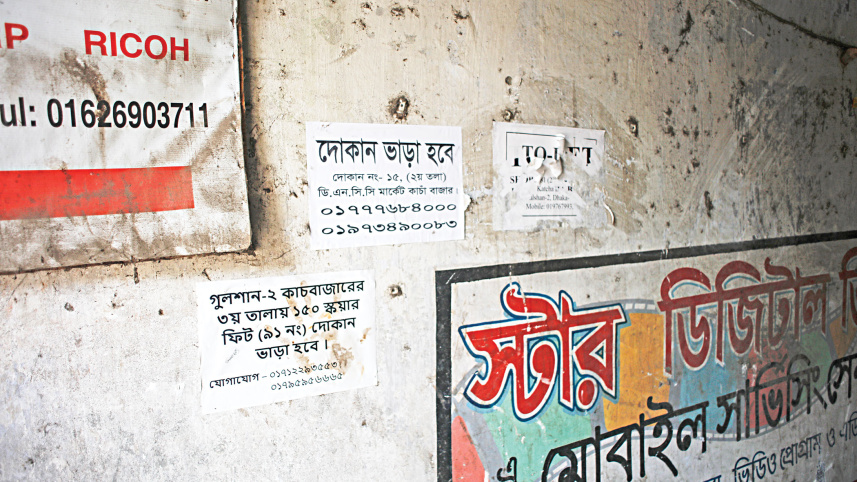 RICOH
ul: 01626903711
দোকান ভাড়া হবে
দোকান নং- ১৫, (২য় তলা)
ডি.এন.সি.সি মার্কেট কাচাঁ বাজার।
০১৭৭৭৬৮৪০০০
০১৯৭৩৪৯০০৮৩
TO-LET
Katcha
ulshan-2, Dhaka
Mobile: 019767993
গুলশান-২ কাচবাজারের
৩য় তালায় ১৫০ স্কয়ার
ফিট (৯১ নং) দোকান
ভাড়া হবে।
যোগাযোগ - ০১৭১২২৯৩৫৫৩
০১৭৯৫৯৫৬৬৬৫
স্টার ডিজিটাল
এ মোবাইল সার্ভিসিং সে
ভিডিও প্রোগ্রাম ও এডি